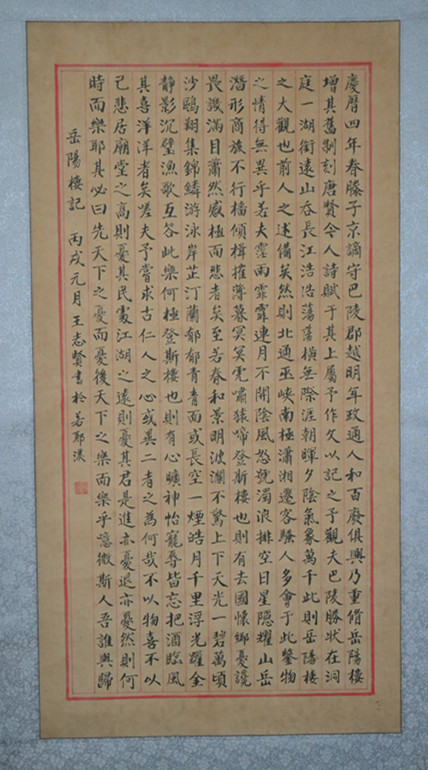 慶曆四年春滕子京謫守巴陵郡越明年政通人和百廢俱興乃重脩岳陽樓
增其舊制刻唐賢今人詩賦于其上屬予作文以記之予觀夫巴陵勝狀在洞
庭一湖銜遠山吞長江浩浩蕩蕩橫無際涯朝暉夕陰氣象萬千此則岳陽樓
之大觀也前人之述備矣然則北通巫峽南極瀟湘遷客騷人多會于此覽物
之情得無異乎若夫霪雨霏霏連月不開陰風怒號濁浪排空日星隱耀山岳
潛形商旅不行檣傾楫摧薄暮冥冥虎嘯猿啼登斯樓也則有去國懷鄉憂讒
畏譏滿目蕭然感極而悲者矣至若春和景明波瀾不驚上下天光一碧萬頃
沙鷗翔集錦鱗游泳岸芷汀蘭郁郁青青而或長空一煙皓月千里浮光躍金
靜影沉璧漁歌互答此樂何極登斯樓也則有心曠神怡寵辱皆忘把酒臨風
其喜洋洋者矣嗟夫予嘗求古仁人之心或異二者之為何哉不以物喜不以
己悲居廟堂之高則憂其民處江湖之遠則憂其君是進亦憂退亦憂然則何
時而樂耶其必曰先天下之憂而憂後天下之樂而樂乎噫微斯人吾誰與歸
岳陽樓記 丙戌元月王志賢書於若耶溪